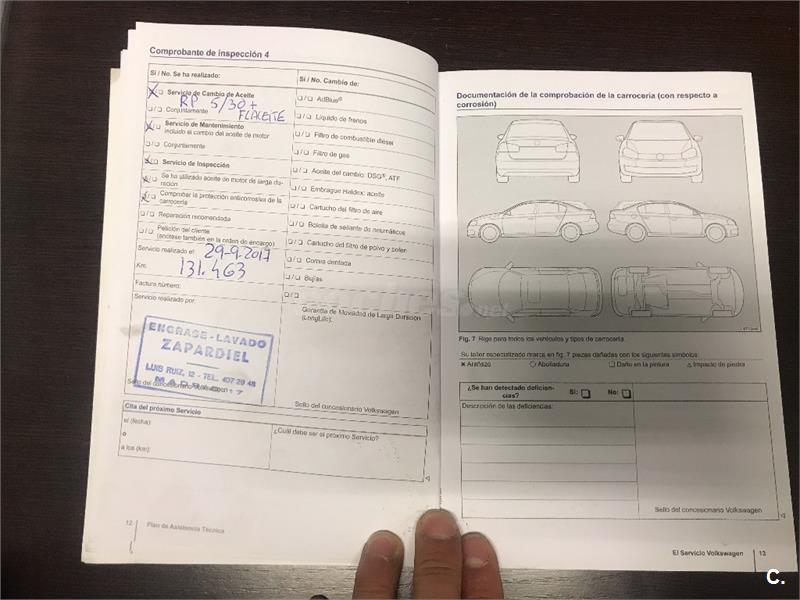 Comprobante de inspección 4
Sí / No. Se ha realizado:
Servicio de Cambio de Aceite
RP 5/30 +
Conjuntamente FLACEITE
Servicio de Mantenimiento
incluido el cambio del aceite de motor
Conjuntamente
Servicio de Inspección
Se ha utilizado aceite de motor de larga du-
ración
Comprobar la protección anticorrosiva de la
carrocería
Reparación recomendada
Petición del cliente
(anótese también en la orden de encargo)
Servicio realizado el: 29-9-2017
Km: 131.463
Factura número:
Servicio realizado por:
ENGRASE - LAVADO
ZAPARDIEL
LUIS RUIZ, 12 - TEL. 407 29 48
Sello del concesionario Volkswagen
Sí / No. Cambio de:
AdBlue®
Líquido de frenos
Filtro de combustible diésel
Filtro de gas
Aceite del cambio: DSG®, ATF
Embrague Haldex: aceite
Cartucho del filtro de aire
Botella de sellante de neumáticos
Cartucho del filtro de polvo y polen
Correa dentada
Bujías
Garantía de Movilidad de Larga Duración
(LongLife):
Sello del concesionario Volkswagen
Cita del próximo Servicio
el (fecha):
o
a los (km):
¿Cuál debe ser el próximo Servicio?
12 Plan de Asistencia Técnica
Documentación de la comprobación de la carrocería (con respecto a
corrosión)
Fig. 7 Rige para todos los vehículos y tipos de carrocería
Su taller especializado marca en fig. 7 piezas dañadas con los siguientes símbolos:
× Arañazo ○ Abolladura □ Daño en la pintura △ Impacto de piedra
¿Se han detectado deficien-
cias? Sí: No:
Descripción de las deficiencias:
Sello del concesionario Volkswagen
El Servicio Volkswagen 13
C.